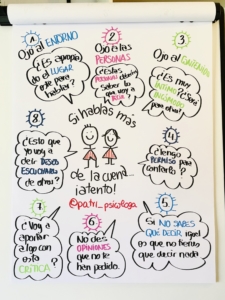 1
Ojo al ENTORNO
¿Es apropia
do el LUGAR
este para
hablar?
2
Ojo a las
PERSONAS
¿Estas
PERSONAS deben
saber lo
que voy a
3
Ojo al
¿Es muy
ÍNTIMO
para otros?
Si hablas más
de la cuenta...
¡atento!
@patri_psicologa
8
¿Esto que
yo voy a
decir DESEO
ESCUCHARLO
de otros?
4
¿Tengo
PERMISO para
contarlo?
7
¿Voy a
aportar
algo con
esta
CRÍTICA?
6
No des
OPINIONES
que no te
han pedido.
5
Si NO SABES
QUÉ DECIR, igual
es que no tienes
que decir nada